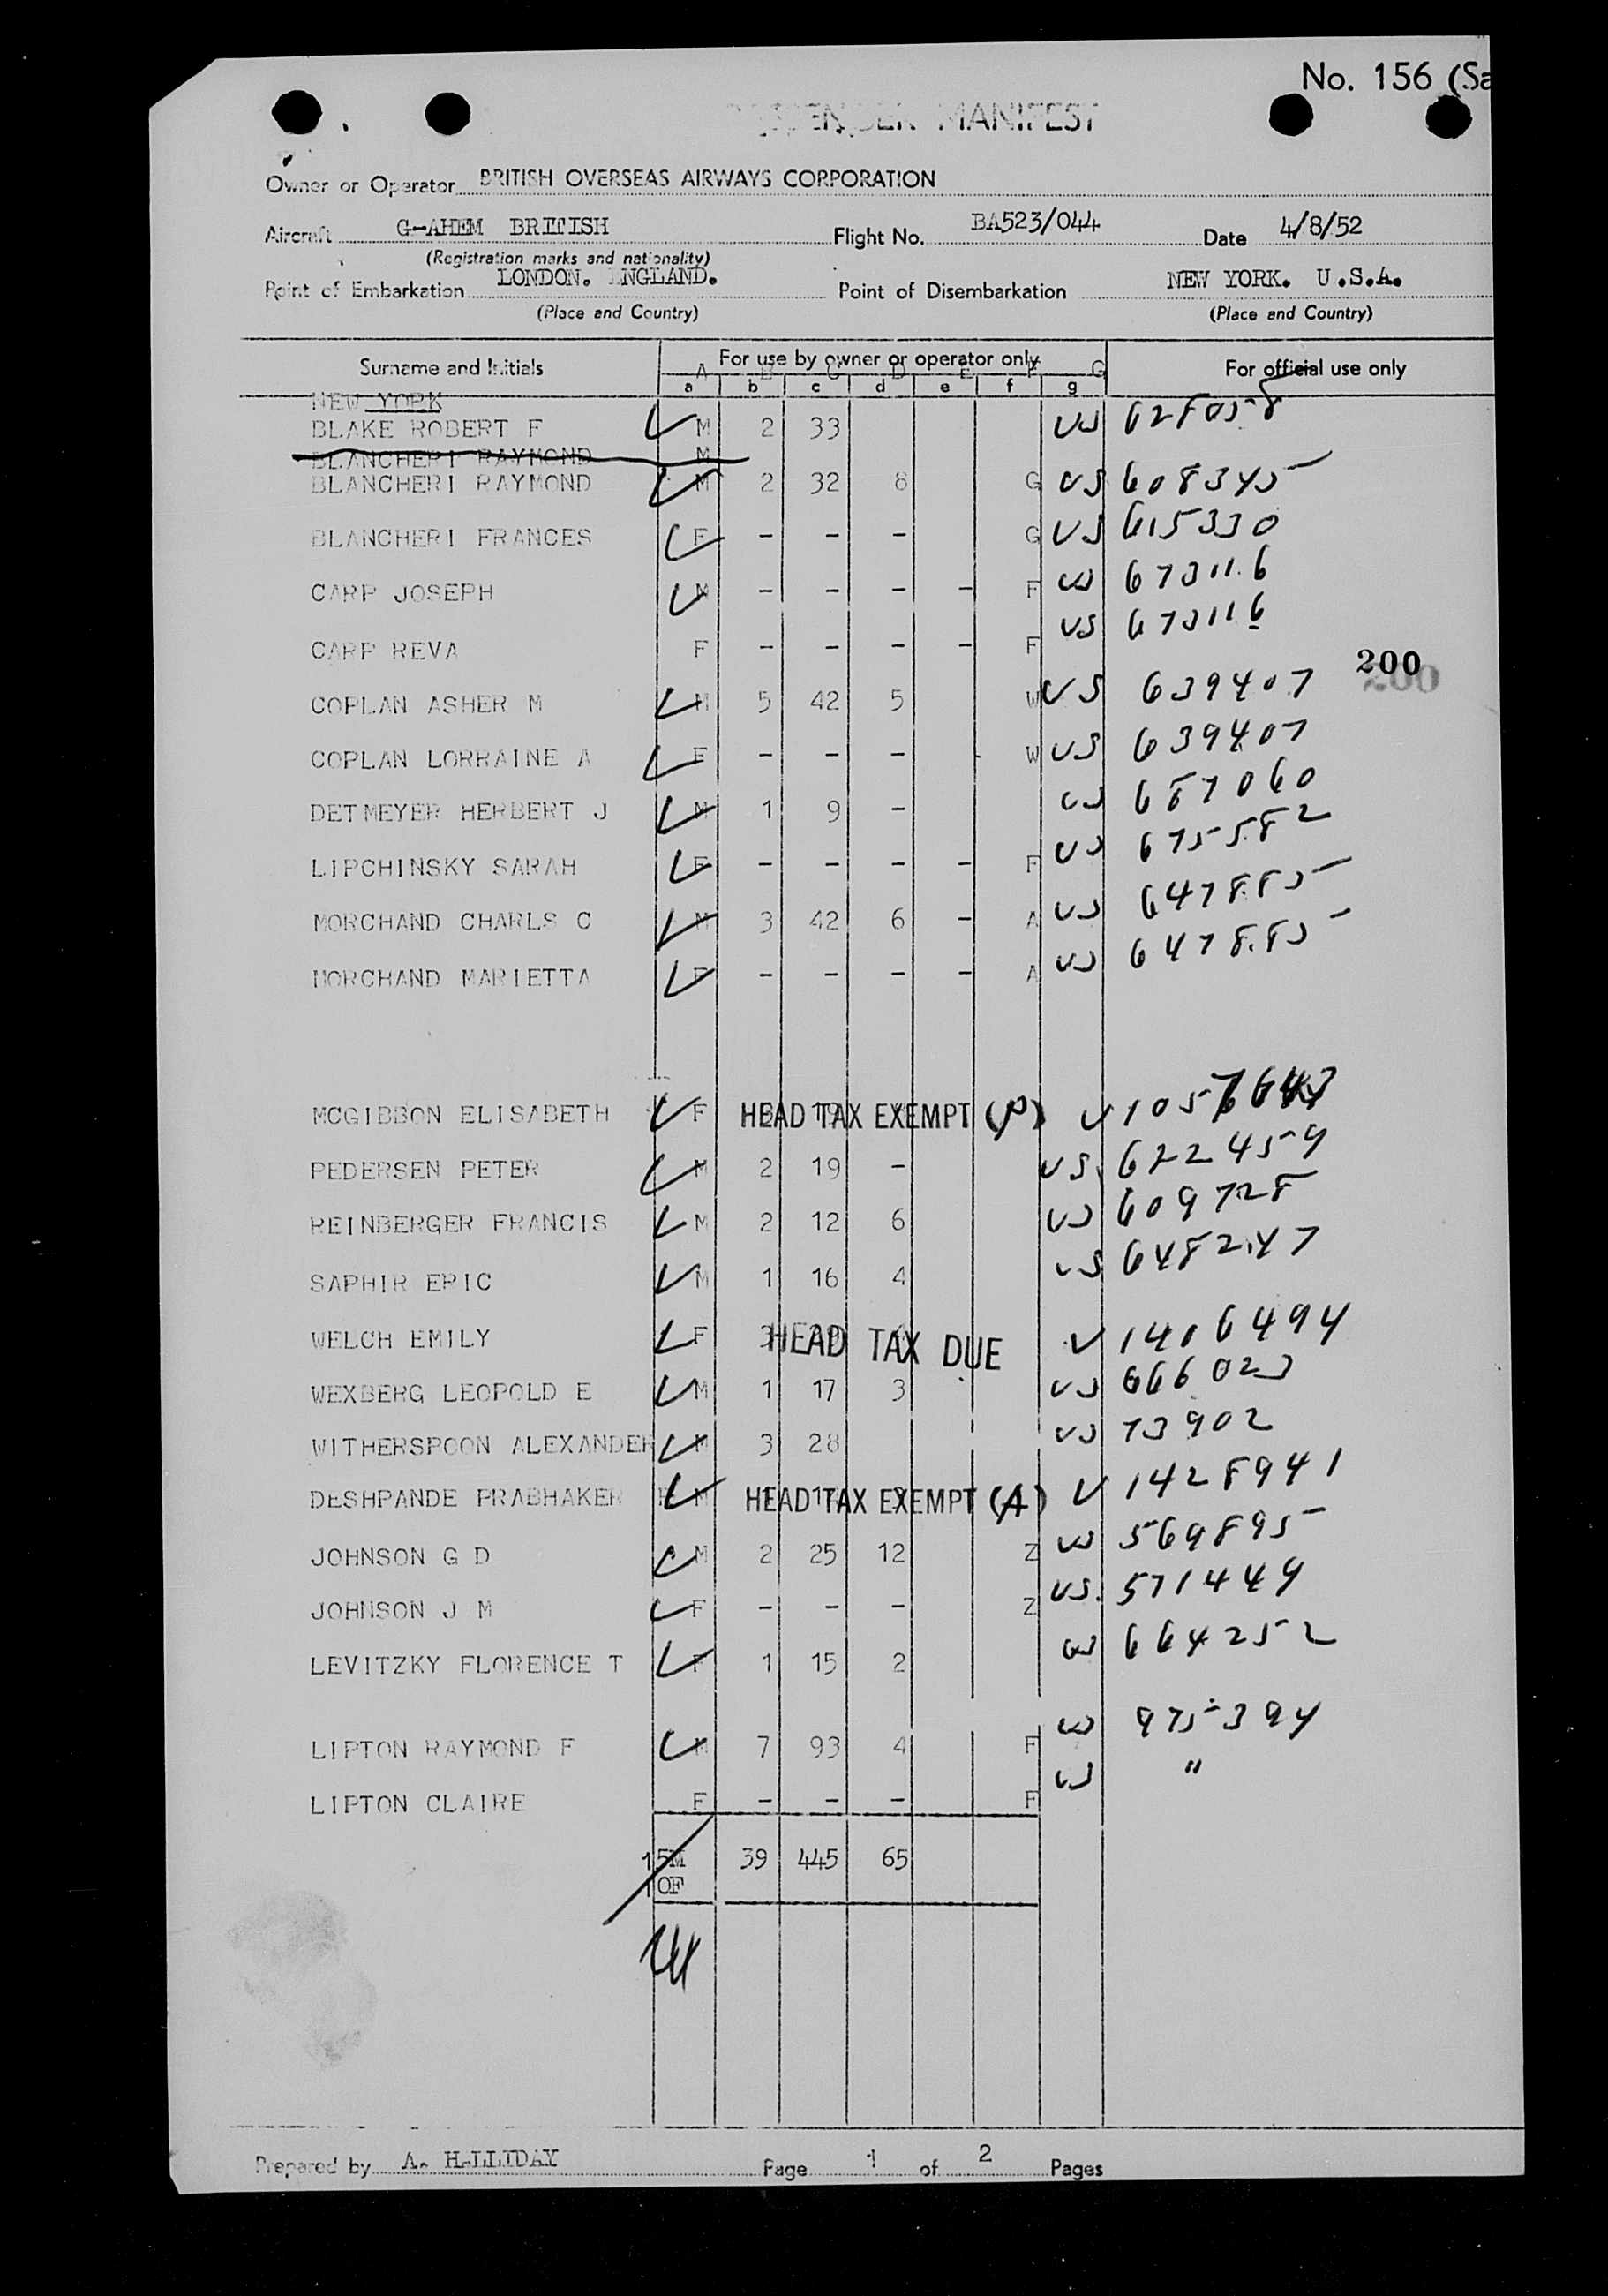 No. 156 (Sa
PASSENGER MANIFEST
Owner or Operator BRITISH OVERSEAS AIRWAYS CORPORATION
Aircraft G-AHEM BRITISH Flight No. BA523/044 Date 4/8/52
(Registration marks and nationality)
Point of Embarkation LONDON. ENGLAND. Point of Disembarkation NEW YORK. U.S.A.
(Place and Country) (Place and Country)
Surname and Initials For use by owner or operator only For official use only
A B C D E F G
a b c d e f g
NEW YORK
BLAKE ROBERT F M 2 33 US 628058
BLANCHERI RAYMOND M
BLANCHERI RAYMOND M 2 32 8 G US 608345
BLANCHERI FRANCES F - - - G US 615330
CARP JOSEPH M - - - - F US 673116
CARP REVA F - - - - F US 673116
200
COPLAN ASHER M M 5 42 5 W US 639407
COPLAN LORRAINE A F - - - W US 639407
DETMEYER HERBERT J M 1 9 - US 687060
LIPCHINSKY SARAH F - - - - F US 675582
MORCHAND CHARLS C M 3 42 6 - A US 647885
MORCHAND MARIETTA F - - - - A US 647885
MCGIBBON ELISABETH F HEAD TAX EXEMPT (P) V
PEDERSEN PETER M 2 19 - US 622459
REINBERGER FRANCIS M 2 12 6 US 609728
SAPHIR ERIC M 1 16 4 US 648247
WELCH EMILY F 3 HEAD TAX DUE V 1406494
WEXBERG LEOPOLD E M 1 17 3 US 666023
WITHERSPOON ALEXANDER M 3 28 US 73902
DESHPANDE PRABHAKER M HEAD TAX EXEMPT (A) V 1428941
JOHNSON G D M 2 25 12 Z US 569895
JOHNSON J M F - - - Z US 571449
LEVITZKY FLORENCE T F 1 15 2 US 664252
LIPTON RAYMOND F M 7 93 4 F US 975394
LIPTON CLAIRE F - - - F US "
15M 39 445 65
10F
Prepared by A. HALLIDAY Page 1 of 2 Pages